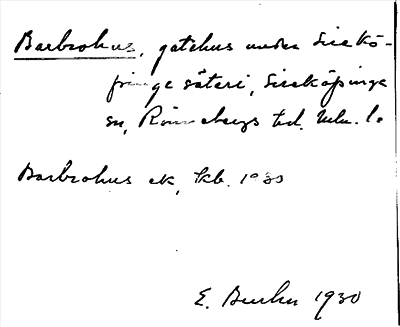 Barbrohus, gatehus under Sirekö-
pinge säteri, Sireköpinge
sn, Rönnebergs hd. Mlm. l.
Barbrohus ek, kb. 1930
1930